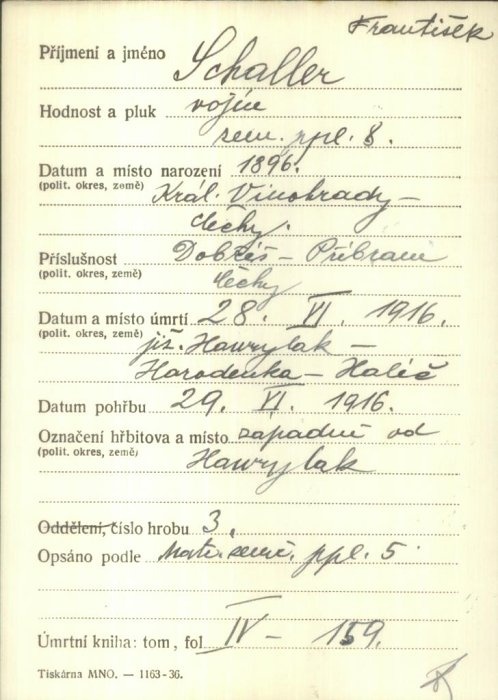 František
Příjmení a jméno Schaller
Hodnost a pluk vojín
zem. ppl. 8.
Datum a místo narození 1896.
(polit. okres, země) Král. Vinohrady –
Čechy.
Příslušnost Dobříš – Příbram
(polit. okres, země) Čechy
Datum a místo úmrtí 28. VI. 1916.
(polit. okres, země) již. Hawrylak –
Horodenka – Halič
Datum pohřbu 29. VI. 1916.
Označení hřbitova a místo západně od
(polit. okres, země) Hawrylak
Oddělení, číslo hrobu 3.
Opsáno podle Matr. zem. ppl. 5
Úmrtní kniha: tom, fol IV – 159.
Tiskárna MNO. — 1163-36.